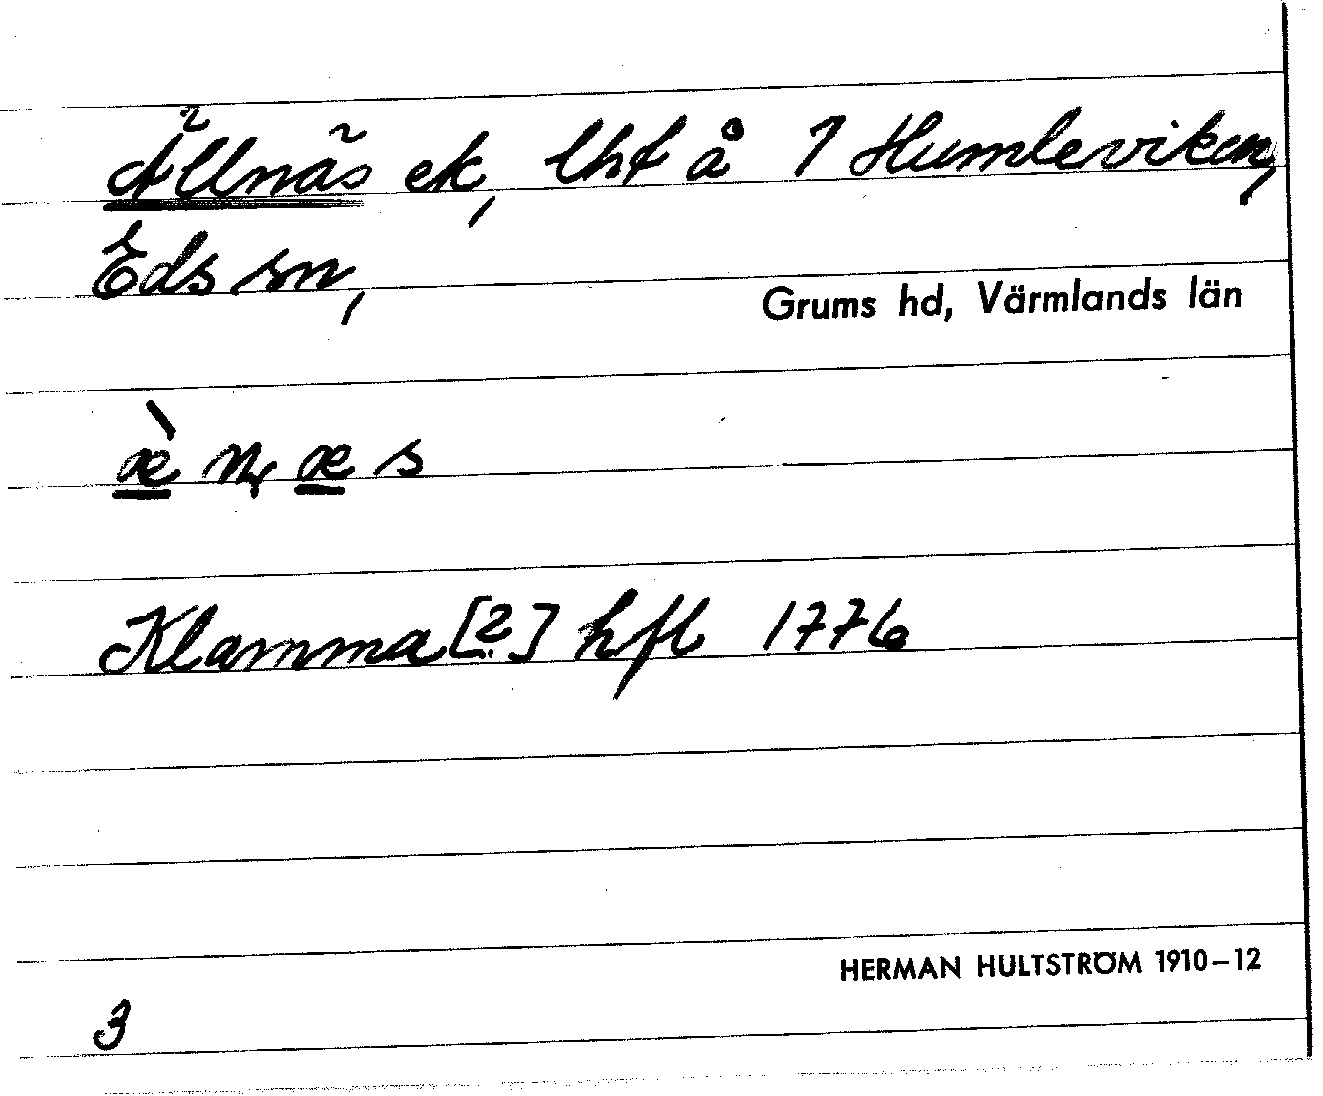 Ällnäs ek, lht å 1 Humleviken,
Eds sn,
Grums hd, Värmlands län
æ̀ n, æ s
Klamma [?] hfl 1776
HERMAN HULTSTRÖM 1910–12
3